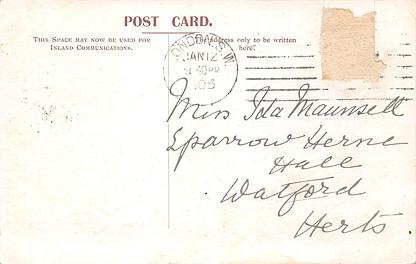 POST CARD.
THIS SPACE MAY NOW BE USED FOR
INLAND COMMUNICATIONS.
address only to be written
here.
LONDON. S.W.
JAN 12
9 40 PM
05
Miss Ida Maunsell
Sparrow Herne
Hall
Watford
Herts.